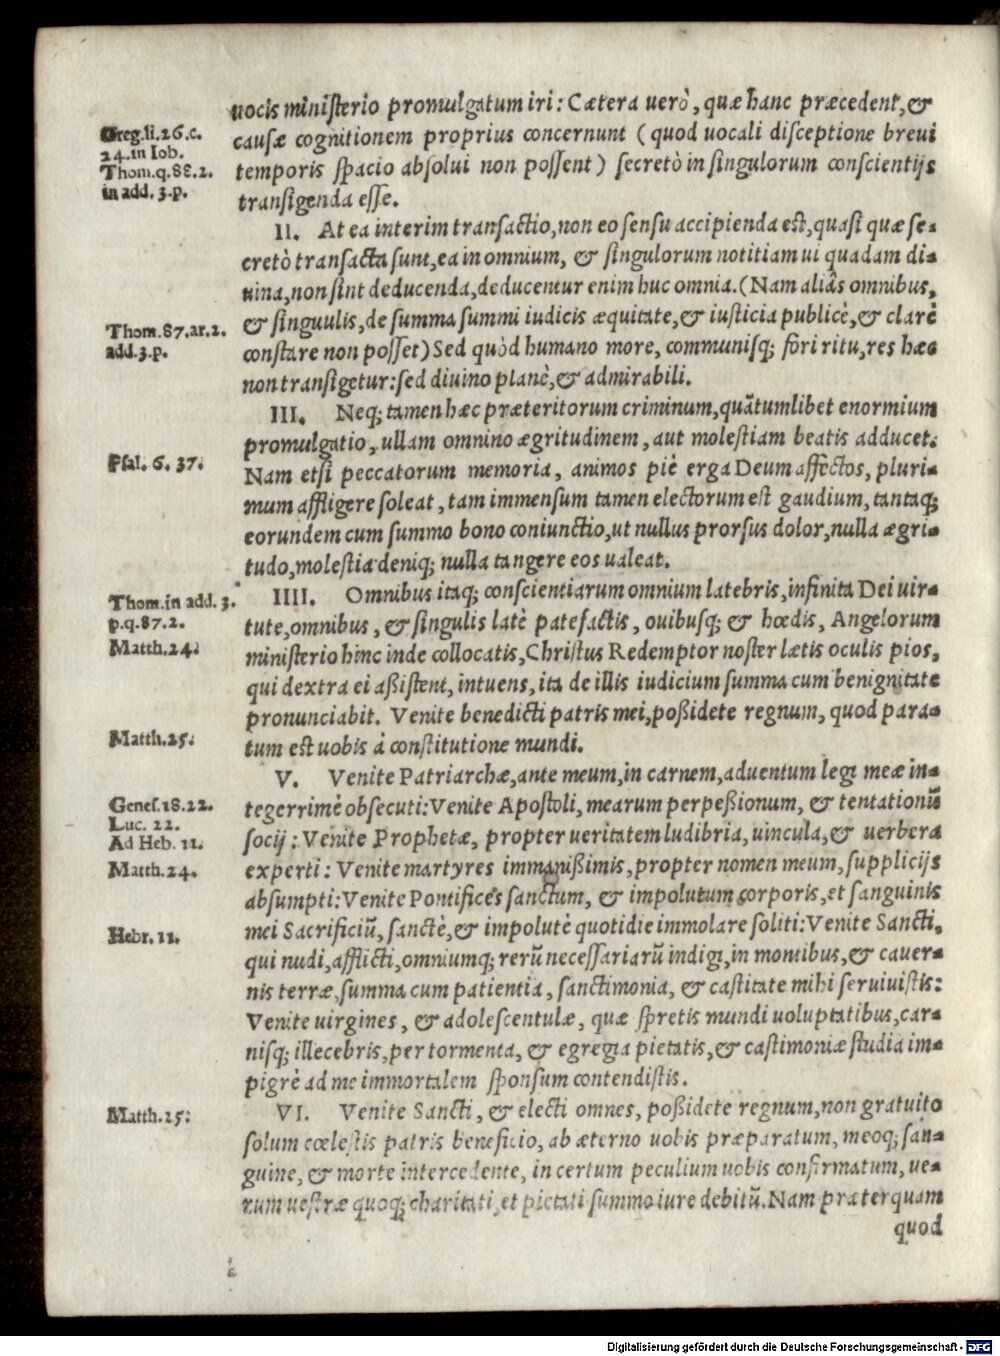 uocis ministerio promulgatum iri: Cætera uerò, quæ hanc præcedent, &
Greg. li. 26. c.
24. in Iob.
Thom. q. 88. 2.
in add. 3. p.
causæ cognitionem proprius concernunt ( quod uocali disceptione breui
temporis spacio absolui non possent ) secretò in singulorum conscientijs
transigenda esse.
II. At ea interim transactio, non eo sensu accipienda est, quasi quæ se-
cretò transacta sunt, ea in omnium, & singulorum notitiam ui quadam di-
uina, non sint deducenda, deducentur enim huc omnia. (Nam aliâs omnibus,
Thom. 87. ar. 2.
add. 3. p.
& singuulis, de summa summi iudicis æquitate, & iusticia publicè, & clarè
constare non posset) Sed quòd humano more, communisq; fori ritu, res hæc
non transigetur: sed diuino planè, & admirabili.
III. Neq; tamen hæc præteritorum criminum, quãtumlibet enormium
promulgatio, ullam omnino ægritudinem, aut molestiam beatis adducet.
Psal. 6. 37.
Nam etsi peccatorum memoria, animos piè erga Deum affectos, pluri-
mum affligere soleat, tam immensum tamen electorum est gaudium, tantaq;
eorundem cum summo bono coniunctio, ut nullus prorsus dolor, nulla ægri-
tudo, molestia deniq; nulla tangere eos ualeat.
Thom. in add. 3.
p. q. 87. 2.
Matth. 24.
IIII. Omnibus itaq; conscientiarum omnium latebris, infinita Dei uir-
tute, omnibus, & singulis latè patefactis, ouibusq; & hœdis, Angelorum
ministerio hinc inde collocatis, Christus Redemptor noster lætis oculis pios,
qui dextra ei aßistent, intuens, ita de illis iudicium summa cum benignitate
pronunciabit. Venite benedicti patris mei, poßidete regnum, quod para-
Matth. 25.
tum est uobis à constitutione mundi.
V. Venite Patriarchæ, ante meum, in carnem, aduentum legi meæ in-
Genes. 18. 22.
Luc. 22.
Ad Heb. 11.
Matth. 24.
tegerrimè obsecuti: Venite Apostoli, mearum perpeßionum, & tentationũ
socij: Venite Prophetæ, propter ueritatem ludibria, uincula, & uerbera
experti: Venite martyres immanißimis, propter nomen meum, supplicijs
absumpti: Venite Pontifices sanctum, & impolutum corporis, et sanguinis
Hebr. 11.
mei Sacrificiũ, sanctè, & impolutè quotidie immolare soliti: Venite Sancti,
qui nudi, afflicti, omniumq; rerũ necessariarũ indigi, in montibus, & cauer-
nis terræ, summa cum patientia, sanctimonia, & castitate mihi seruiuistis:
Venite uirgines, & adolescentulæ, quæ spretis mundi uoluptatibus, car-
nisq; illecebris, per tormenta, & egregia pietatis, & castimoniæ studia im-
pigrè ad me immortalem sponsum contendistis.
Matth. 25.
VI. Venite Sancti, & electi omnes, poßidete regnum, non gratuito
solum cœlestis patris beneficio, ab æterno uobis præparatum, meoq; san-
guine, & morte intercedente, in certum peculium uobis confirmatum, ue-
rum uestræ quoq; charitati, et pietati summo iure debitũ. Nam præterquam
quod
Digitalisierung gefördert durch die Deutsche Forschungsgemeinschaft - DFG